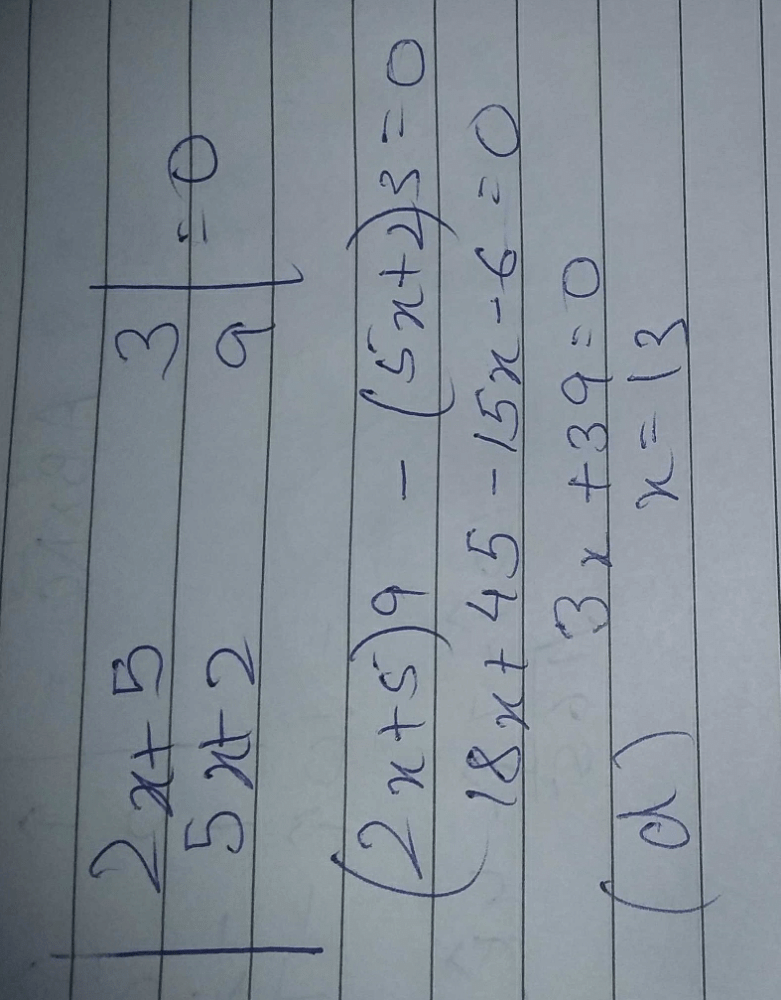 | 2x+5 3 |
| 5x+2 9 | = 0
(2x+5)9 - (5x+2)3 = 0
18x+45-15x-6 = 0
3x+39=0
(d) x=13